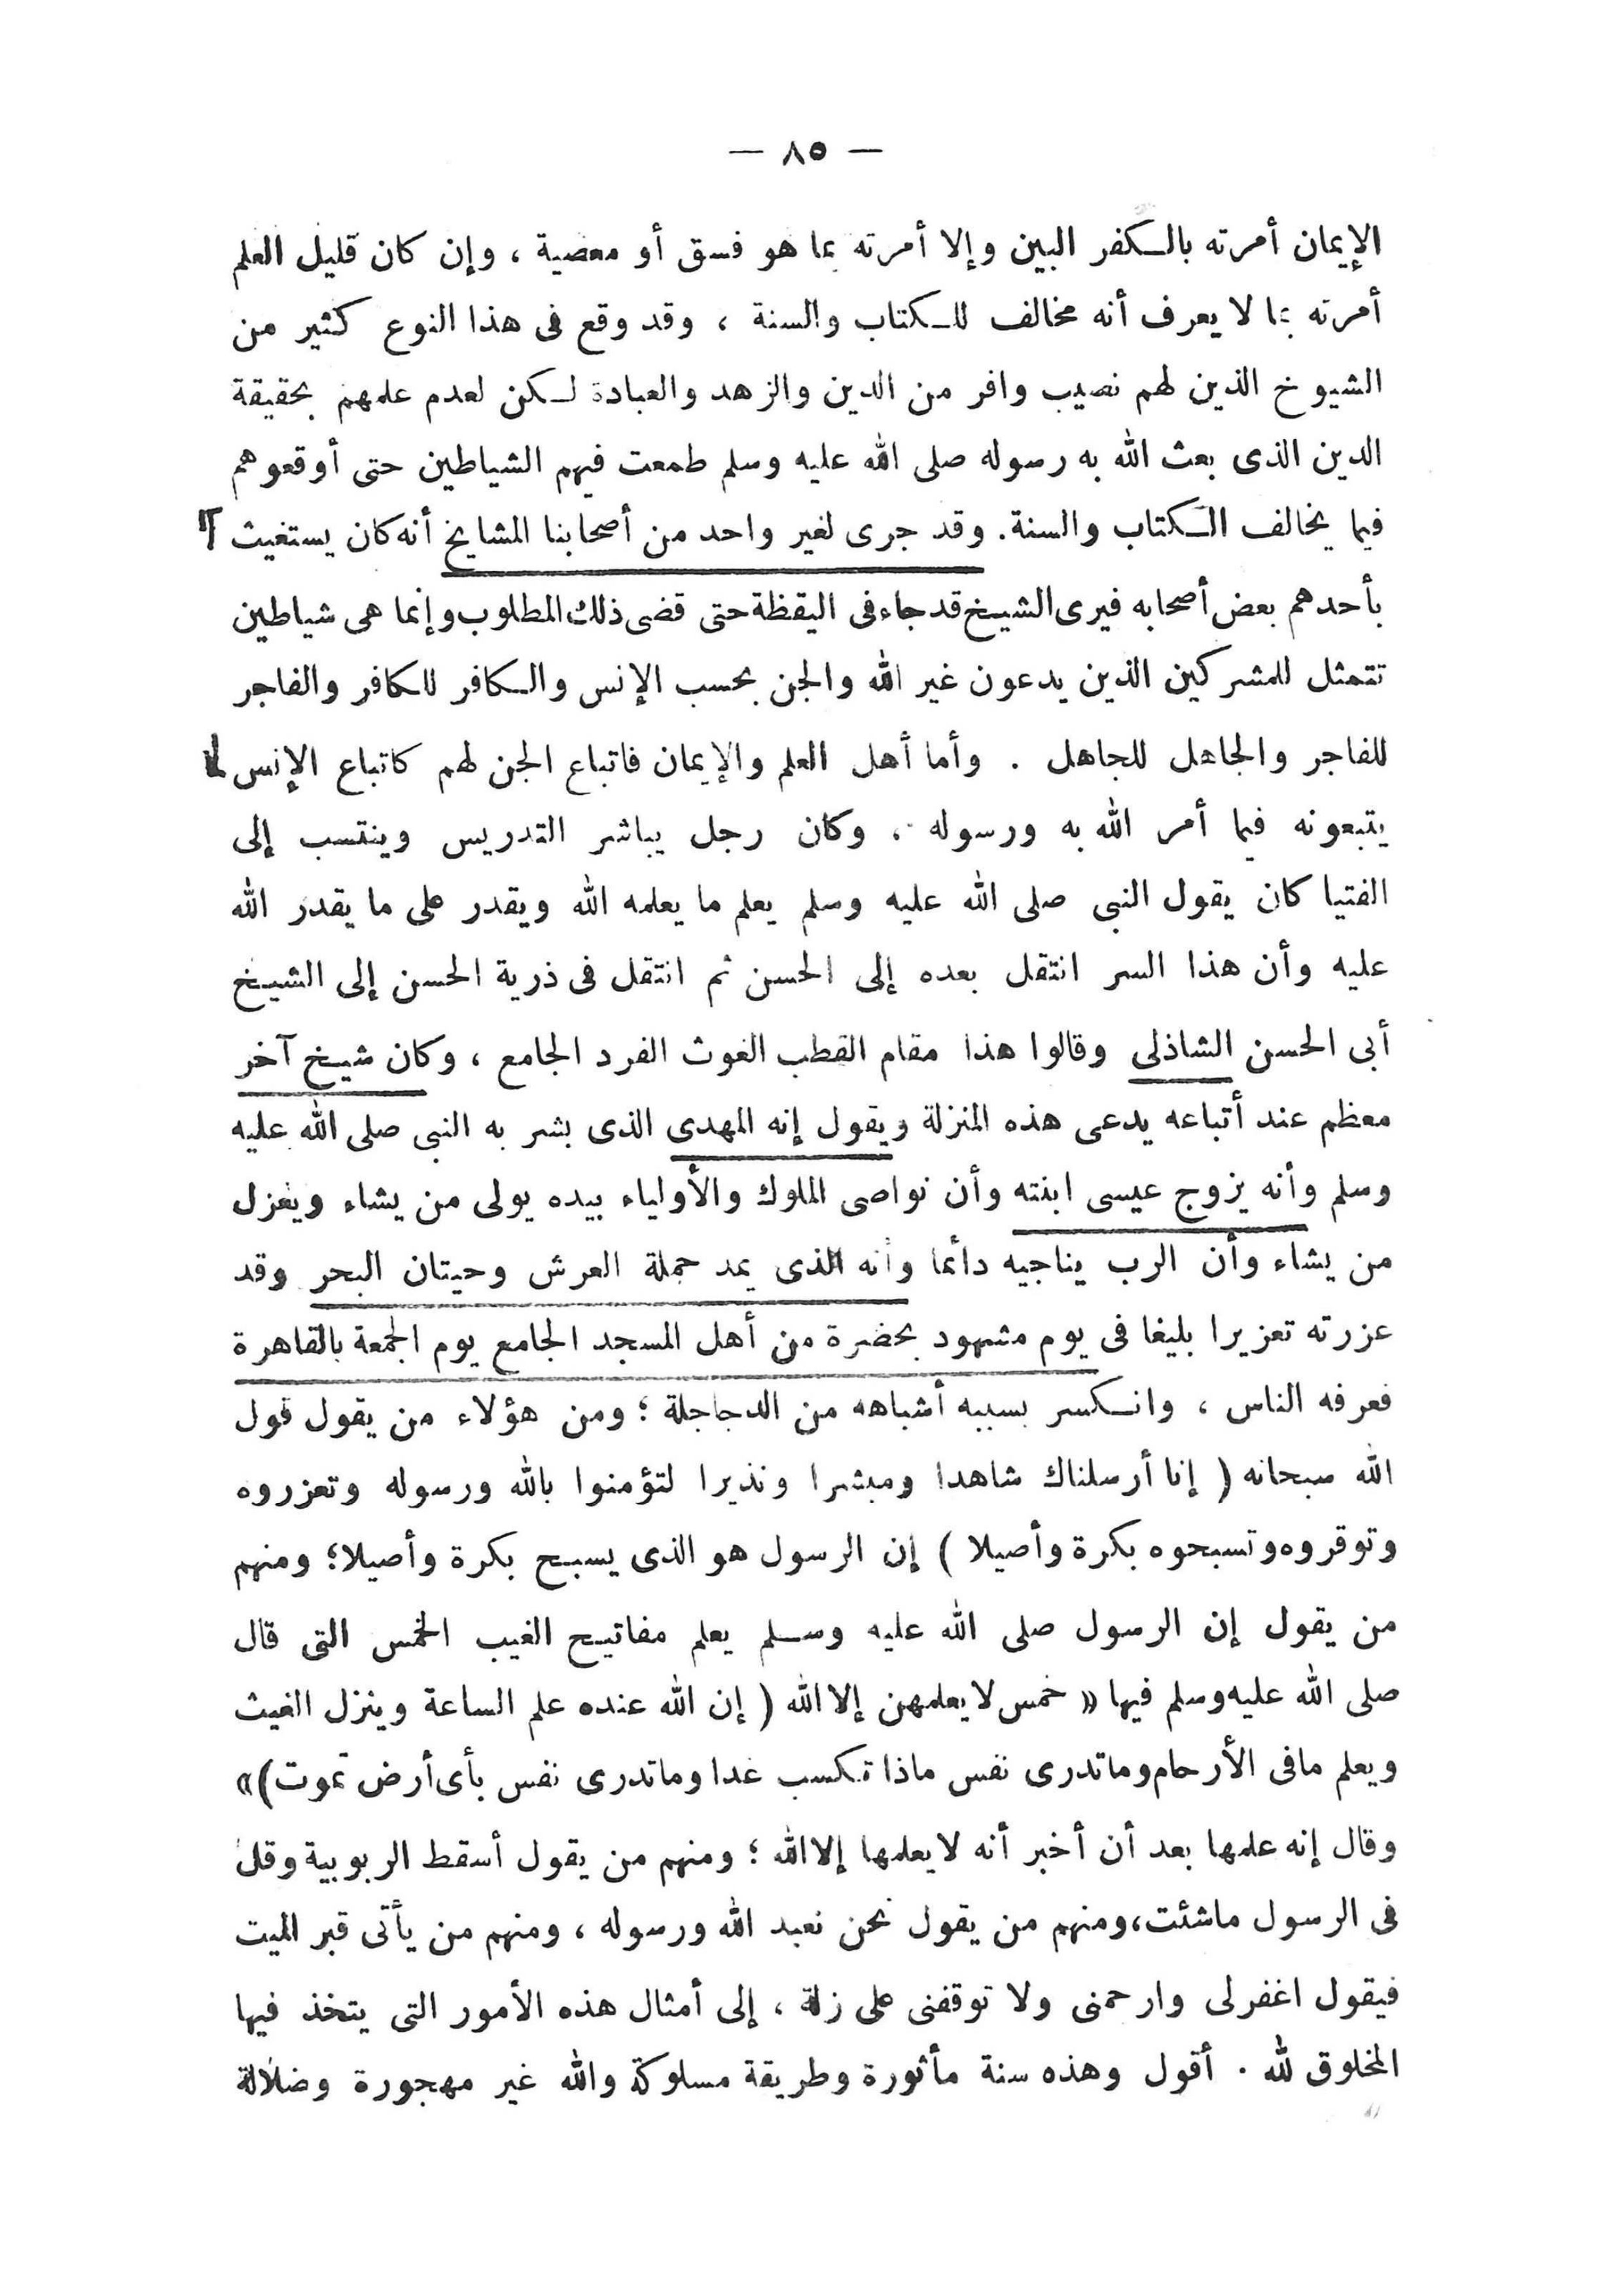 — ٨٥ —
الإيمان أمرته بالكفر البين وإلا أمرته بما هو فسق أو معصية ، وإن كان قليل العلم
أمرته بما لا يعرف أنه مخالف للكتاب والسنة ، وقد وقع فى هذا النوع كثير من
الشيوخ الذين لهم نصيب وافر من الدين والزهد والعبادة لكن لعدم علمهم بحقيقة
الدين الذى بعث الله به رسوله صلى الله عليه وسلم طمعت فيهم الشياطين حتى أوقعوهم
فيما يخالف الكتاب والسنة. وقد جرى لغير واحد من أصحابنا المشايخ أنه كان يستغيث
بأحدهم بعض أصحابه فيرى الشيخ قد جاء فى اليقظة حتى قضى ذلك المطلوب وإنما هى شياطين
تتمثل للمشركين الذين يدعون غير الله والجن بحسب الإنس والكافر للكافر والفاجر
للفاجر والجاهل للجاهل . وأما أهل العلم والإيمان فاتباع الجن لهم كاتباع الإنس
يتبعونه فيما أمر الله به ورسوله ، وكان رجل يباشر التدريس وينتسب إلى
الفتيا كان يقول النبى صلى الله عليه وسلم يعلم ما يعلمه الله ويقدر على ما يقدر الله
عليه وأن هذا السر انتقل بعده إلى الحسن ثم انتقل فى ذرية الحسن إلى الشيخ
أبى الحسن الشاذلى وقالوا هذا مقام القطب الغوث الفرد الجامع ، وكان شيخ آخر
معظم عند أتباعه يدعى هذه المنزلة ويقول إنه المهدى الذى بشر به النبى صلى الله عليه
وسلم وأنه يزوج عيسى ابنته وأن نواصى الملوك والأولياء بيده يولى من يشاء ويعزل
من يشاء وأن الرب يناجيه دائما وأنه الذى يمد حملة العرش وحيتان البحر وقد
عزرته تعزيرا بليغا فى يوم مشهود بحضرة من أهل المسجد الجامع يوم الجمعة بالقاهرة
فعرفه الناس ، وانكسر بسببه أشباهه من الدجاجلة ؛ ومن هؤلاء من يقول قول
الله سبحانه ( إنا أرسلناك شاهدا ومبشرا ونذيرا لتؤمنوا بالله ورسوله وتعزروه
وتوقروه وتسبحوه بكرة وأصيلا ) إن الرسول هو الذى يسبح بكرة وأصيلا؛ ومنهم
من يقول إن الرسول صلى الله عليه وسلم يعلم مفاتيح الغيب الخمس التى قال
صلى الله عليه وسلم فيها « خمس لا يعلمهن إلا الله ( إن الله عنده علم الساعة وينزل الغيث
ويعلم مافى الأرحام وماتدرى نفس ماذا تكسب غدا وماتدرى نفس بأى أرض تموت)»
وقال إنه علمها بعد أن أخبر أنه لا يعلمها إلا الله ؛ ومنهم من يقول أسقط الربوبية وقل
فى الرسول ماشئت، ومنهم من يقول نحن نعبد الله ورسوله ، ومنهم من يأتى قبر الميت
فيقول اغفر لى وارحمنى ولا توقفنى على زلة ، إلى أمثال هذه الأمور التى يتخذ فيها
المخلوق لله . أقول وهذه سنة مأثورة وطريقة مسلوكة والله غير مهجورة وضلالة